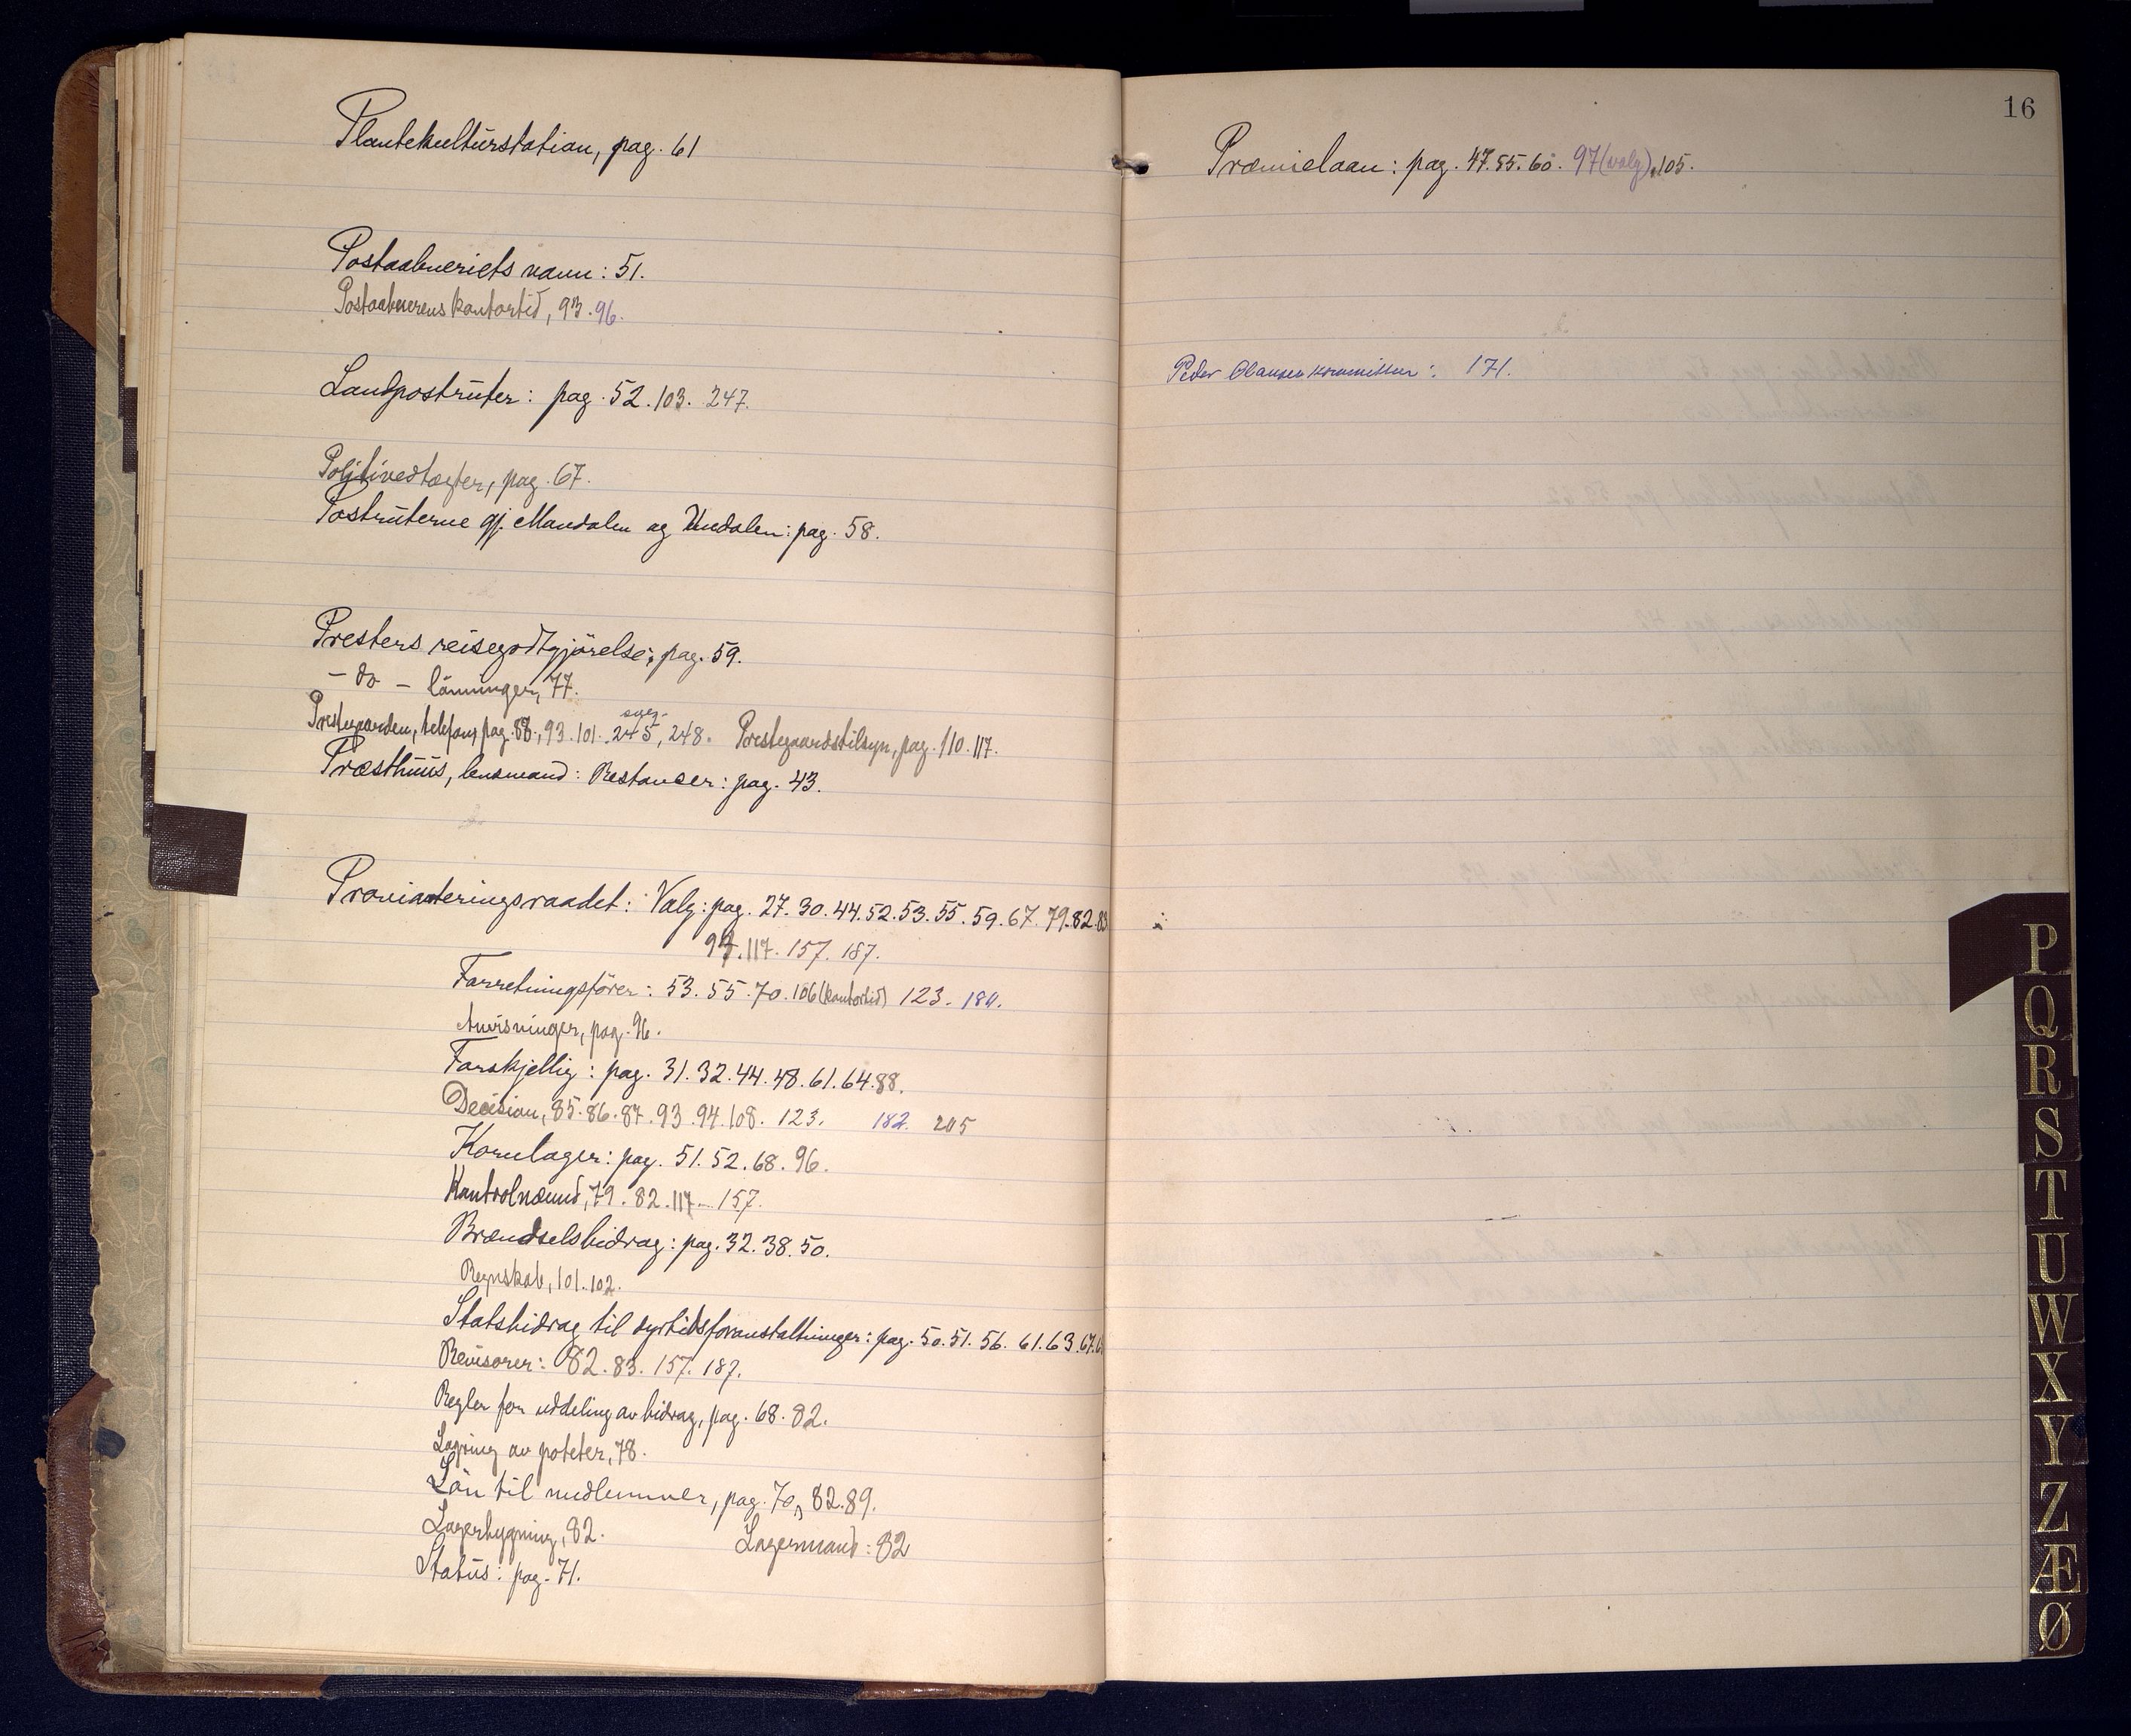 Plantekulturstation, pag. 61
Postaabneriets navn: 51.
Postaabnerens kontortid, 93. 96.
Landpostruter: pag. 52. 103. 247.
Politivedtægter, pag. 67.
Postruterne gj. Mandalen og Undalen: pag. 58.
Presters reisegodtgjörelse: pag. 59.
- do - lönninger, 77.
Prestegaarden, telefon, pag. 88, 93. 101. 245, 248. Prestegaardstilsyn, pag. 110. 117.
Præsthuus, lensmand: Restancer: pag. 43.
Provianteringsraadet: Valg: pag. 27. 30. 44. 52. 53. 55. 59. 67. 79. 82. 83
117. 157. 187.
Forretningsförer: 53. 55. 70. 106 (kontortid) 123. 180.
Anvisninger, pag. 96.
Forskjellig: pag. 31. 32. 44. 48. 61. 64. 88.
Decision, 85. 86. 87. 93. 94. 108. 123. 182. 205
Kornlager: pag. 51. 52. 68. 96.
Kontrolnævnd, 79. 82. 117. 157.
Brændselsbidrag: pag. 32. 38. 50.
Regnskab, 101. 102.
Statsbidrag til dyrtidsforanstaltninger: pag. 50. 51. 56. 61. 63. 67.
Revisorer: 82. 83. 157. 187.
Regler for uddeling av bidrag, pag. 68. 82.
Lagring av poteter, 78.
Lön til medlemmer, pag. 70, 82. 89.
Lagerbygning, 82. Lagermand: 82
Status: pag. 71.
16
Præmielaan: pag. 47. 55. 60. 97 (valg), 105.
Peder Olausen kommitten: 171.
P
Q
R
S
T
U
W
X
Y
Z
Æ
Ø